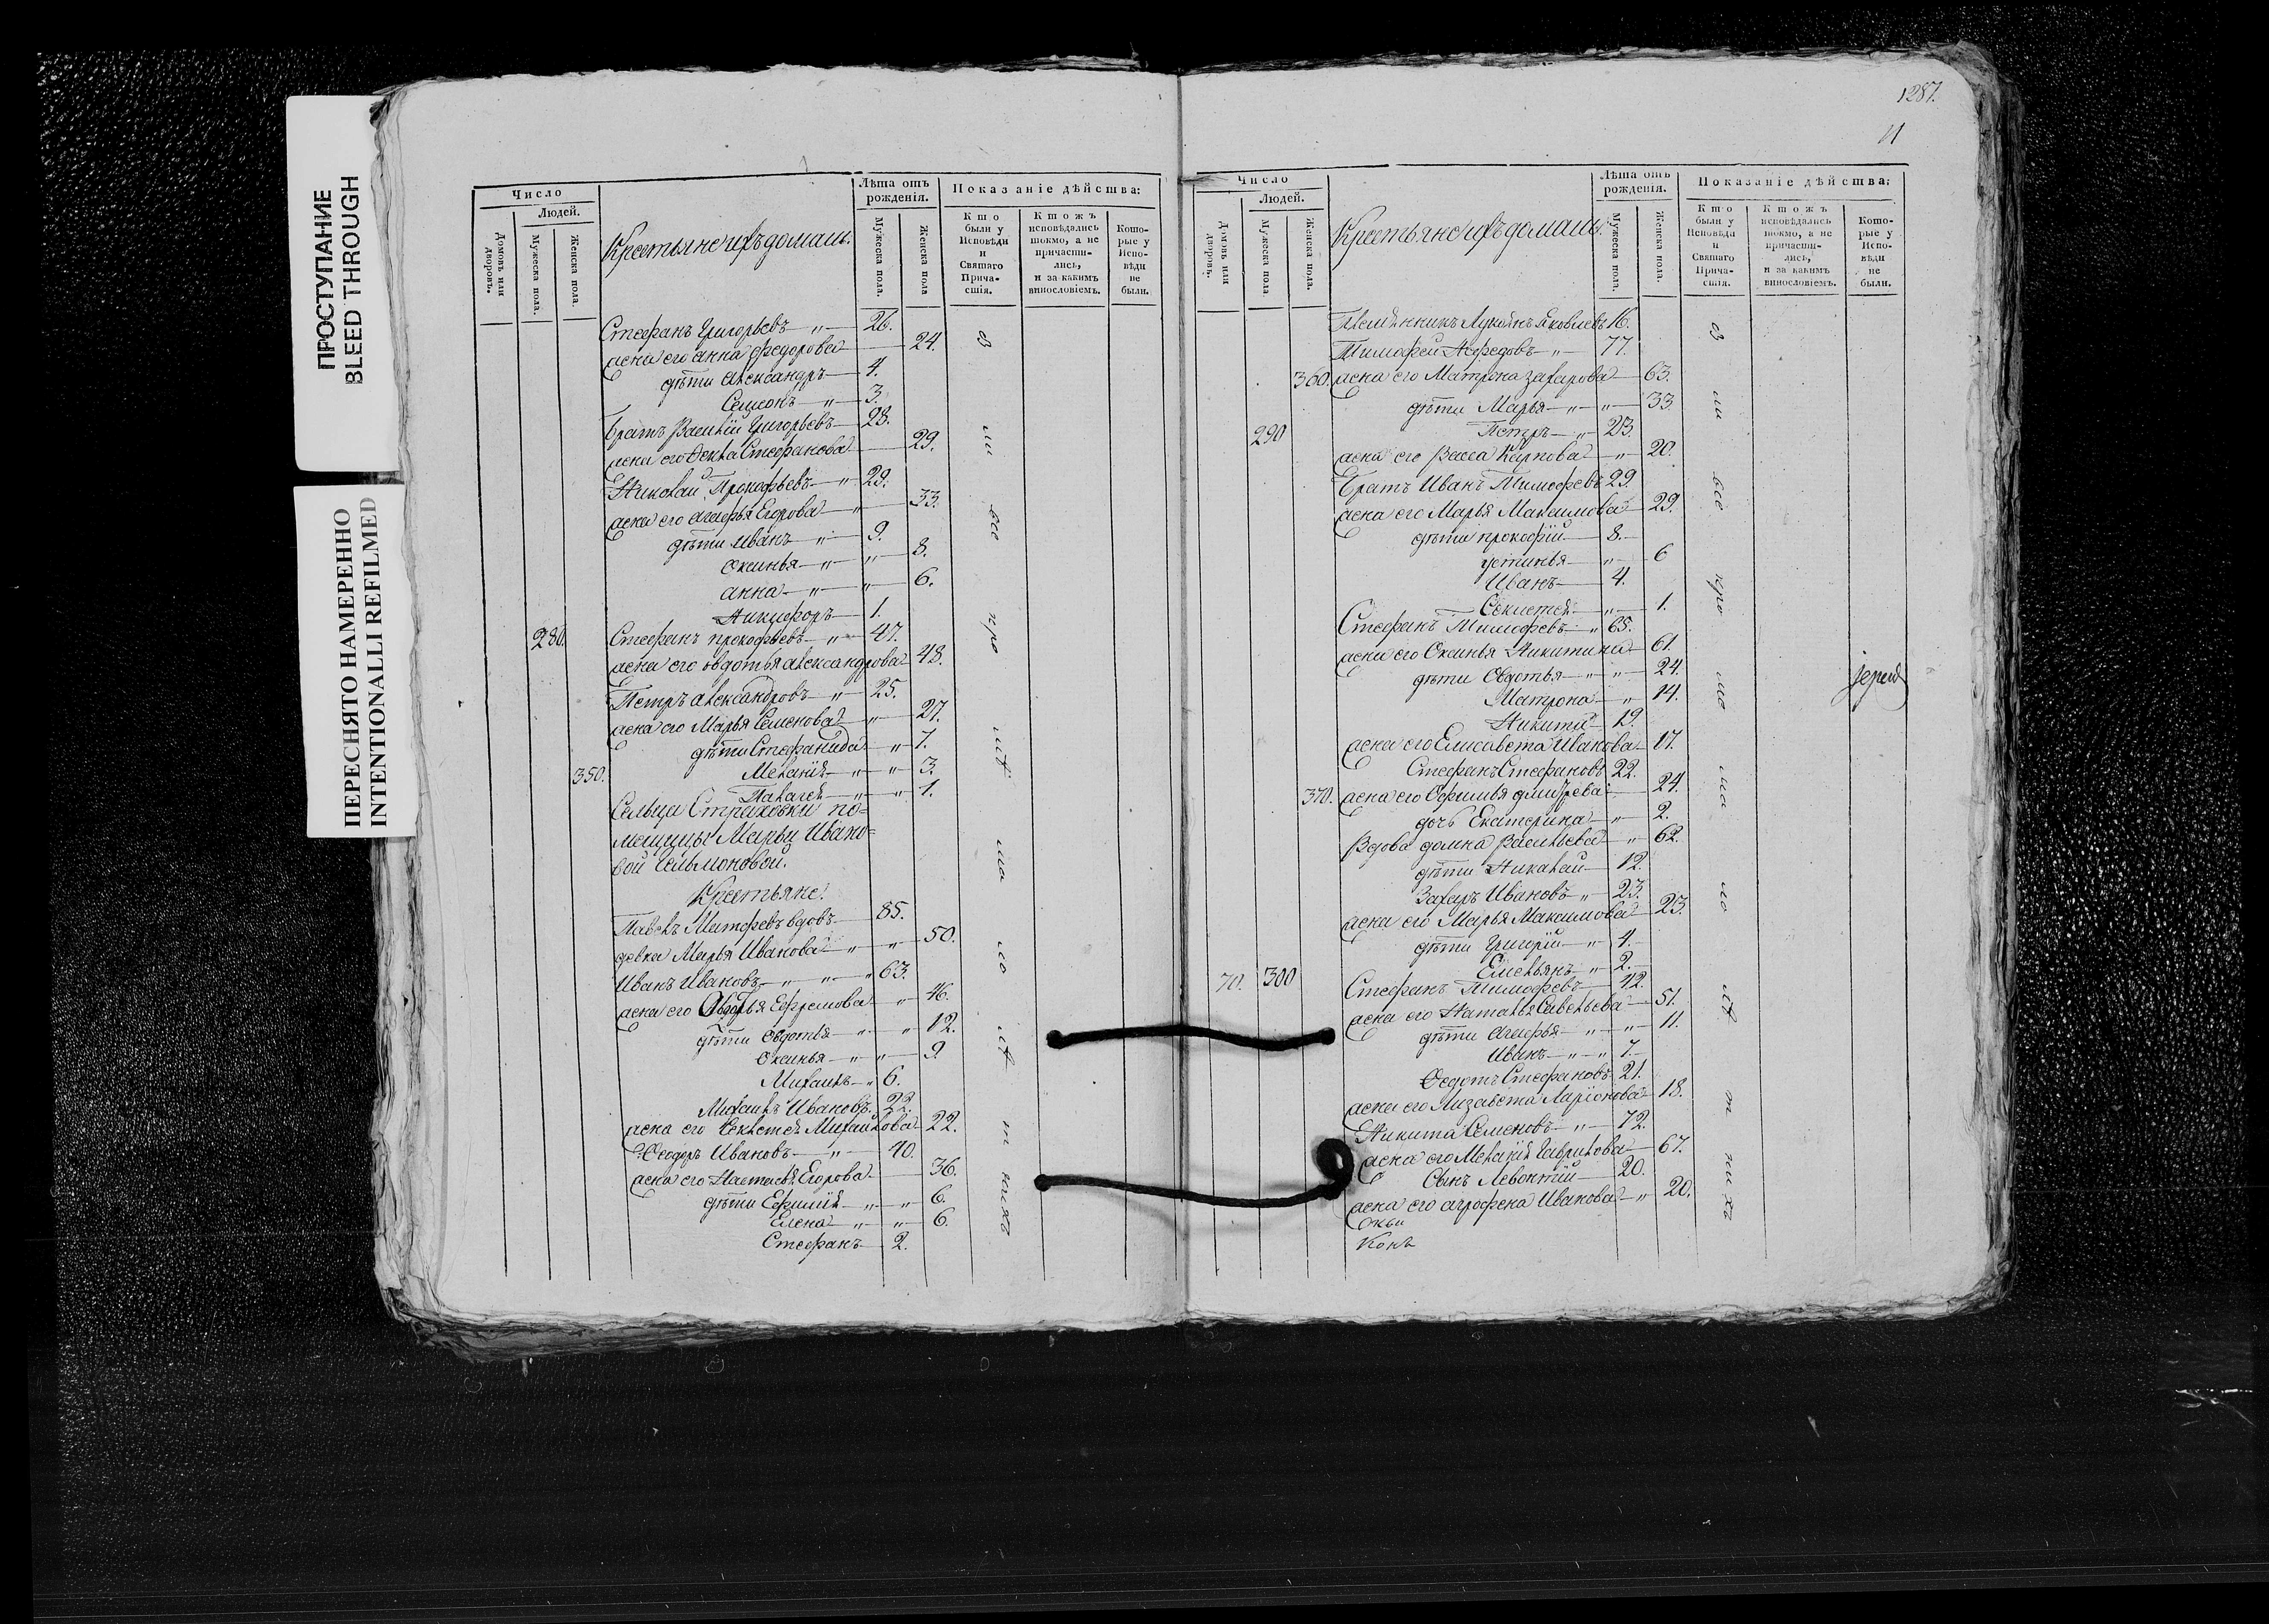 ПРОСТУПАНИЕ
BLEED THROUGH
ПЕРЕСНЯТО НАМЕРЕННО
INTENTIONALLI REFILMED
Число
Людей.
Домовъ или дворовъ.
Мужеска пола.
Женска пола
Крестьяне ихъ домаш:
Лѣта отъ рожденія.
Мужеска пола.
Женска пола
Показаніе дѣйства:
Кто были у Исповѣди и Святаго Причастія.
Ктожъ исповѣдались токмо, а не причастились, и за какимъ винословіемъ.
Которые у Исповѣди не были.
Стефанъ Григорьевъ 26.
жена его анна Федорова 24.
дѣти Александръ 4.
Семионъ 3.
Братъ Василий Григорьевъ 28.
жена его Фекла Стефанова 29.
Николай Прокофьевъ 29.
жена его Агафья Егорова 33.
дѣти Иванъ 9.
Оксинья 8.
анна 6.
Никифоръ 1.
280. Стефанъ прокофьевъ 47.
жена его овдотья александрова 48.
Петръ александровъ 25.
жена его Марья Семенова 27.
дѣти Стефанида 7.
350. Меланія 3.
Палагея 1.
Сельца Страховки по=
мещицы Марьи Ивано=
вой
Крестьяне.
Павелъ вдовъ 85.
девка Марья Иванова 50.
Иванъ Ивановъ 63.
жена его Авдотья Ефремова 46.
дѣти овдотья 12.
Оксинья 9.
Михаилъ 6.
Михаилъ Ивановъ 22.
жена его Феклстея Михайлова 22.
Феодоръ Ивановъ 40.
жена его Настасья Егорова 36.
дѣти Ефимія 6.
Елена 6.
Стефанъ 2.
1287.
11
Число
Людей.
Домовъ или дворовъ.
Мужеска пола.
Женска пола.
Крестьяне ихъ домаш:
Лѣта отъ рожденія.
Мужеска пола.
Женска пола.
Показаніе дѣйства:
Кто были у Исповѣди и Святаго Причастія.
Ктожъ исповѣдались токмо, а не причастились, и за какимъ винословіемъ.
Которые у Исповѣди не были.
Племянникъ Лукьянъ Яковлевъ 16.
Тимофей Нефедовъ 77.
360. жена его Матрона Захарова 63.
дѣти Марья 33
290 Петръ 23.
жена его Васса Карпова 20.
Братъ Иванъ Тимофевъ 29.
жена его Марья Максимова 29.
дѣти прокофій 8.
устинья 6
Иванъ 4.
1.
Стефанъ Тимофевъ 65.
жена его Оксинья Никитина 61.
дѣти Овдотья 24.
Матрона 14.
Никита 19.
жена его Елисавета Иванова 17.
Стефанъ Стефановъ 22.
370. жена его Офимья дмитрева 24.
дочь Екатерина 2.
вдова домна Васильева 62.
дѣти Николай 12.
Захаръ Ивановъ 23.
жена его Марья Максимова 23.
дѣти Григорій 4.
Емельянъ 2.
70. 300 Стефанъ Тимофевъ 42.
жена его Наталья Савельева 51.
дѣти агафья 11.
Иванъ 7.
Федотъ Стефановъ 21.
жена его Лизавета Ларіонова 18.
Никита Семеновъ 72.
жена его Меланія Гаврилова 67.
Сынъ Левонтій 20.
жена его агрофена Иванова 20.
іерей